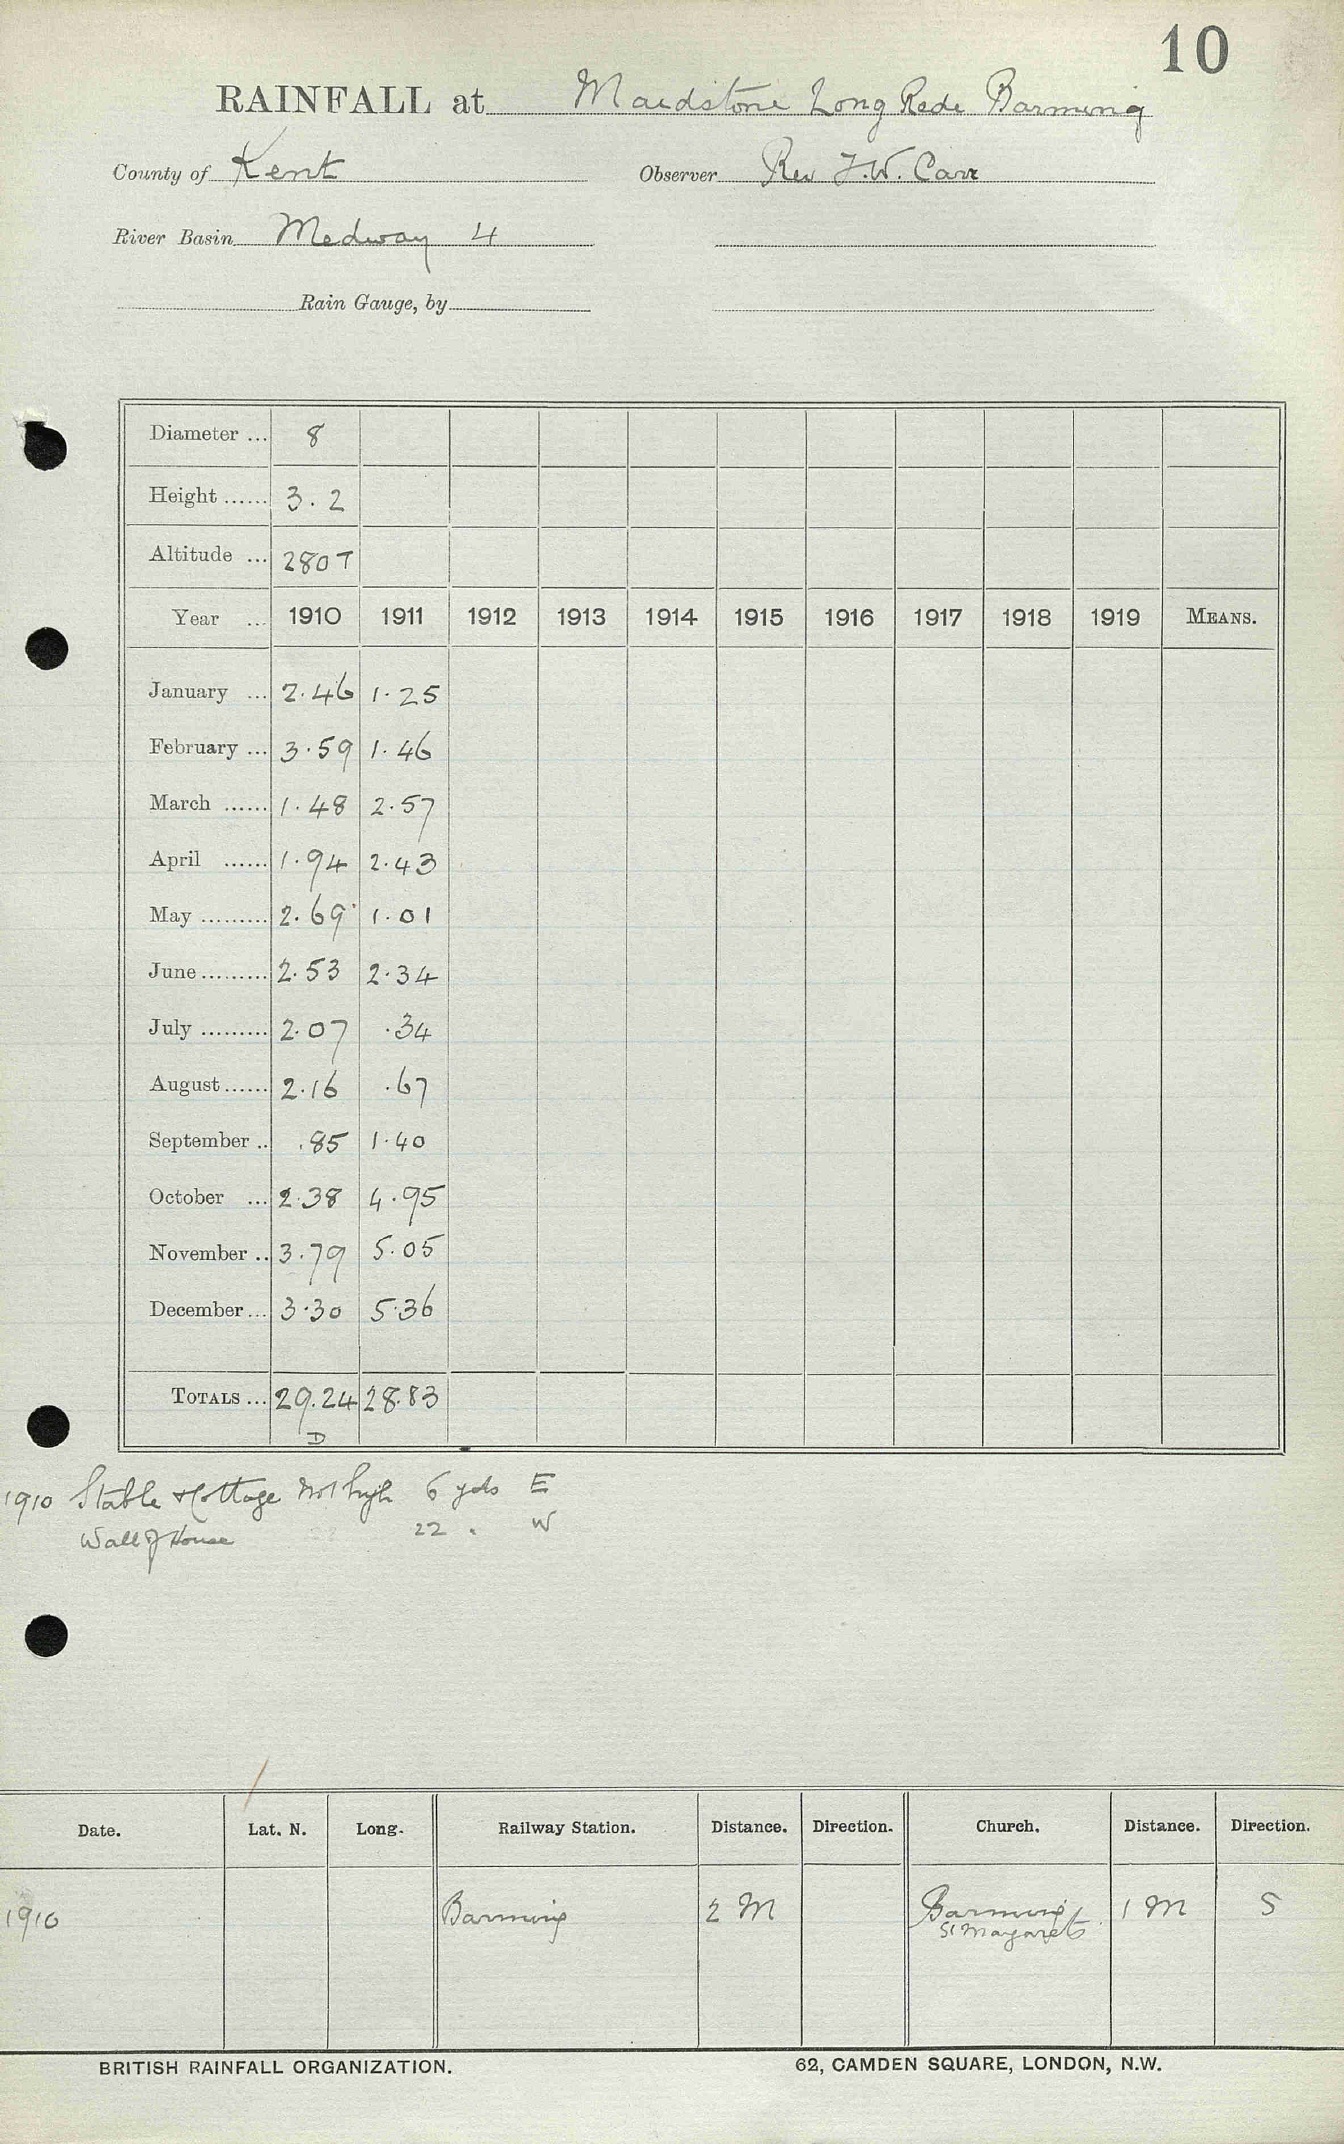 10
RAINFALL at Maidstone Long Rede Barming
County of Kent Observer Rev F.W. Carr
River Basin Medway 4
Rain Gauge, by
Diameter ... 8
Height ...... 3.2
Altitude ... 280 T
Year ... 1910 1911 1912 1913 1914 1915 1916 1917 1918 1919 MEANS.
January ... 2.46 1.25
February ... 3.59 1.46
March ...... 1.48 2.57
April ...... 1.94 2.43
May ......... 2.69 1.01
June ......... 2.53 2.34
July ......... 2.07 .34
August ...... 2.16 .67
September .. .85 1.40
October ... 2.38 4.95
November .. 3.79 5.05
December ... 3.30 5.36
TOTALS ... 29.24 28.83
D
1910 Stable & Cottage not high 6 yds E
Wall of House 22 " W
Date. Lat. N. Long. Railway Station. Distance. Direction. Church. Distance. Direction.
1910 Barming 2 M Barming 1 M S
St Margarets
BRITISH RAINFALL ORGANIZATION. 62, CAMDEN SQUARE, LONDON, N.W.